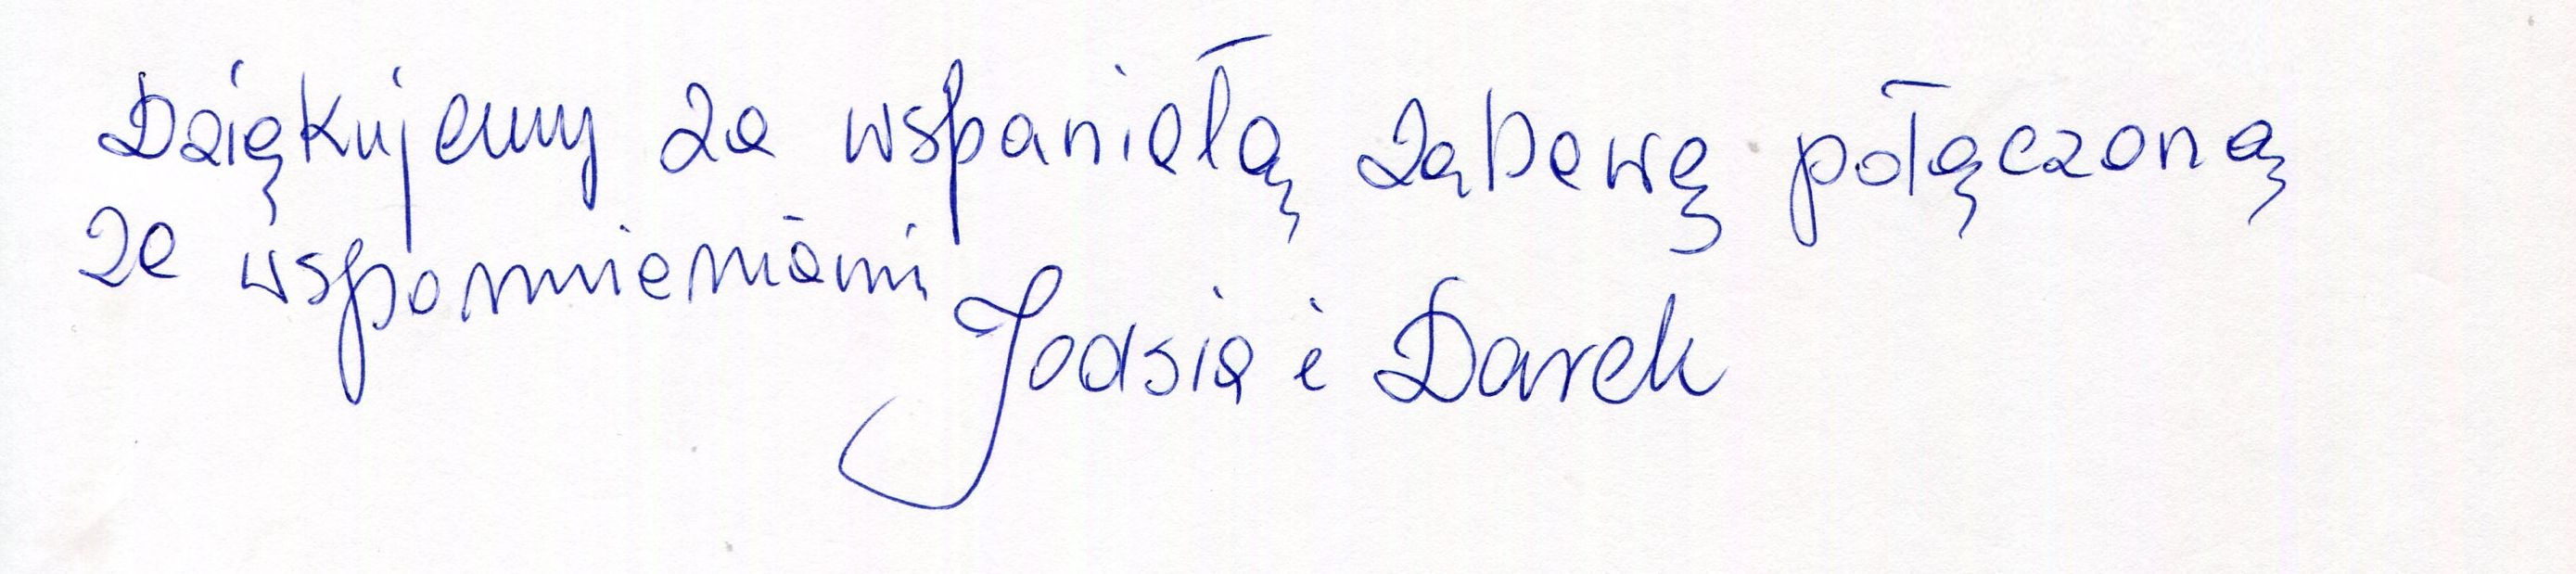 Dziękujemy za wspaniałą zabawę połączoną
ze wspomnieniami
Jadsia i Darek